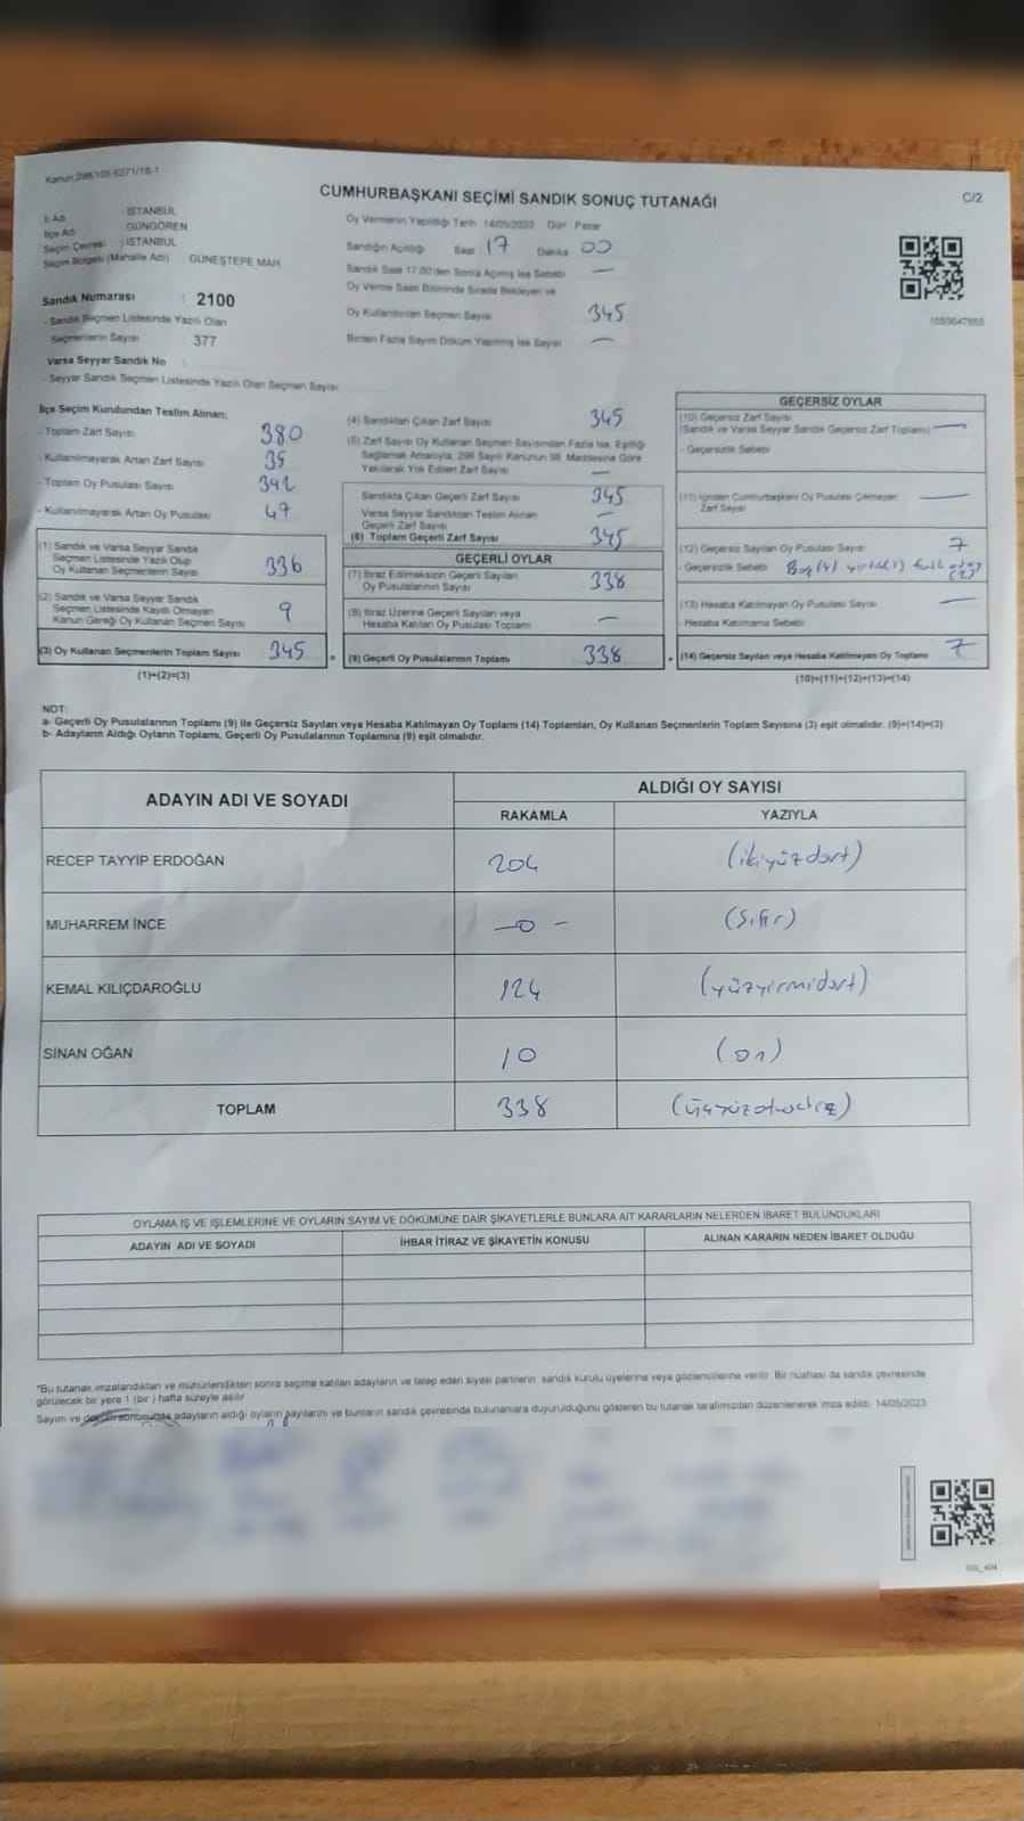 Kanun:298/105-6271/18-1
CUMHURBAŞKANI SEÇİMİ SANDIK SONUÇ TUTANAĞI
C/2
İl Adı : İSTANBUL
İlçe Adı : GÜNGÖREN
Seçim Çevresi : İSTANBUL
Seçim Bölgesi (Mahalle Adı) GÜNEŞTEPE MAH.
Sandık Numarası : 2100
- Sandık Seçmen Listesinde Yazılı Olan
Seçmenlerin Sayısı 377
Varsa Seyyar Sandık No
- Seyyar Sandık Seçmen Listesinde Yazılı Olan Seçmen Sayısı
Oy Vermenin Yapıldığı Tarih 14/05/2023 Gün Pazar
Sandığın Açıldığı Saat 17 Dakika 00
Sandık Saat 17.00'den Sonra Açılmış İse Sebebi —
Oy Verme Saati Bitiminde Sırada Bekleyen ve
Oy Kullandırılan Seçmen Sayısı 345
Birden Fazla Sayım Döküm Yapılmış İse Sayısı —
İlçe Seçim Kurulundan Teslim Alınan;
- Toplam Zarf Sayısı 380
- Kullanılmayarak Artan Zarf Sayısı 35
- Toplam Oy Pusulası Sayısı 392
- Kullanılmayarak Artan Oy Pusulası 47
(1) Sandık ve Varsa Seyyar Sandık
Seçmen Listesinde Yazılı Olup
Oy Kullanan Seçmenlerin Sayısı 336
(2) Sandık ve Varsa Seyyar Sandık
Seçmen Listesinde Kayıtlı Olmayan
Kanun Gereği Oy Kullanan Seçmen Sayısı 9
(3) Oy Kullanan Seçmenlerin Toplam Sayısı 345
(1)+(2)=(3)
(4) Sandıktan Çıkan Zarf Sayısı 345
(5) Zarf Sayısı Oy Kullanan Seçmen Sayısından Fazla İse, Eşitliği
Sağlamak Amacıyla, 298 Sayılı Kanunun 98. Maddesine Göre
Yakılarak Yok Edilen Zarf Sayısı —
Sandıkta Çıkan Geçerli Zarf Sayısı 345
Varsa Seyyar Sandıktan Teslim Alınan
Geçerli Zarf Sayısı —
(6) Toplam Geçerli Zarf Sayısı 345
GEÇERLİ OYLAR
(7) İtiraz Edilmeksizin Geçerli Sayılan
Oy Pusulalarının Sayısı 338
(8) İtiraz Üzerine Geçerli Sayılan veya
Hesaba Katılan Oy Pusulası Toplamı —
(9) Geçerli Oy Pusulalarının Toplamı 338
GEÇERSİZ OYLAR
(10) Geçersiz Zarf Sayısı
(Sandık ve Varsa Seyyar Sandık Geçersiz Zarf Toplamı) —
- Geçersizlik Sebebi
(11) İçinden Cumhurbaşkanı Oy Pusulası Çıkmayan
Zarf Sayısı —
(12) Geçersiz Sayılan Oy Pusulası Sayısı 7
- Geçersizlik Sebebi Boş
(13) Hesaba Katılmayan Oy Pusulası Sayısı —
Hesaba Katılmama Sebebi
(14) Geçersiz Sayılan veya Hesaba Katılmayan Oy Toplamı 7
(10)+(11)+(12)+(13)=(14)
NOT:
a- Geçerli Oy Pusulalarının Toplamı (9) ile Geçersiz Sayılan veya Hesaba Katılmayan Oy Toplamı (14) Toplamları, Oy Kullanan Seçmenlerin Toplam Sayısına (3) eşit olmalıdır. (9)+(14)=(3)
b- Adayların Aldığı Oyların Toplamı, Geçerli Oy Pusulalarının Toplamına (9) eşit olmalıdır.
ADAYIN ADI VE SOYADI
ALDIĞI OY SAYISI
RAKAMLA YAZIYLA
RECEP TAYYİP ERDOĞAN 204 (ikiyüzdört)
MUHARREM İNCE —0— (Sıfır)
KEMAL KILIÇDAROĞLU 124 (yüzyirmidört)
SİNAN OĞAN 10 (on)
TOPLAM 338 (üçyüzotuzsekiz)
OYLAMA İŞ VE İŞLEMLERİNE VE OYLARIN SAYIM VE DÖKÜMÜNE DAİR ŞİKAYETLERLE BUNLARA AİT KARARLARIN NELERDEN İBARET BULUNDUKLARI
ADAYIN ADI VE SOYADI
İHBAR İTİRAZ VE ŞİKAYETİN KONUSU
ALINAN KARARIN NEDEN İBARET OLDUĞU
"Bu tutanak imzalandıktan ve mühürlendikten sonra seçime katılan adayların ve talep eden siyasi partilerin sandık kurulu üyelerine veya gözlemcilerine verilir. Bir nüshası da sandık çevresinde
görülecek bir yere 1 (bir) hafta süreyle asılır
Sayım ve döküm sonucunda adayların aldığı oyların sayılarını ve bunların sandık çevresinde bulunanlara duyurulduğunu gösteren bu tutanak tarafımızdan düzenlenerek imza edildi. 14/05/2023